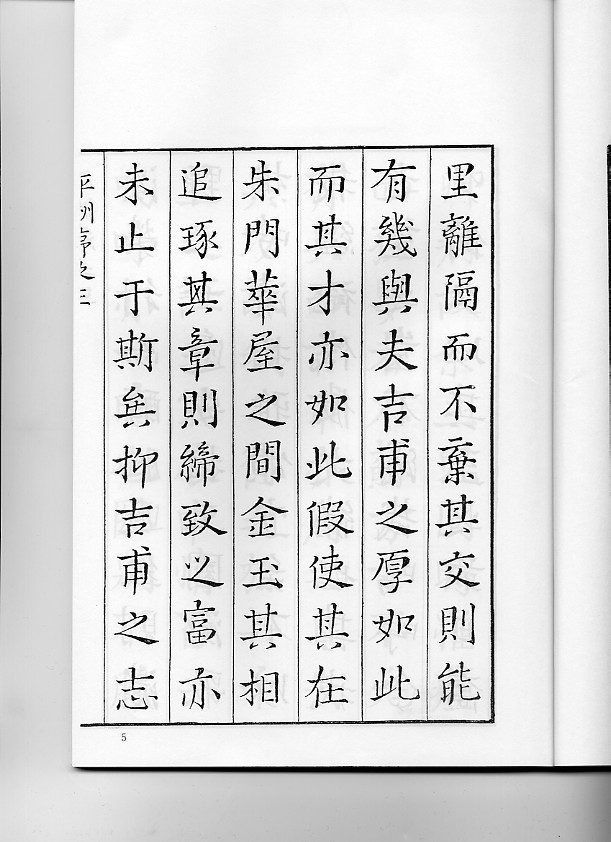 里離隔而不棄其交則能
有幾與夫吉甫之厚如此
而其才亦如此假使其在
朱門華屋之間金玉其相
追琢其章則締致之富亦
未止于斯矣抑吉甫之志
平洲序之三
5